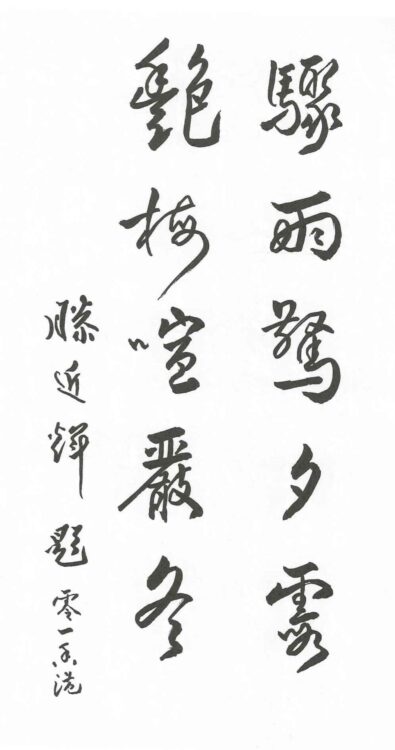 驟雨驚夕
艷梅喧嚴冬
滕近輝 題 零一香港